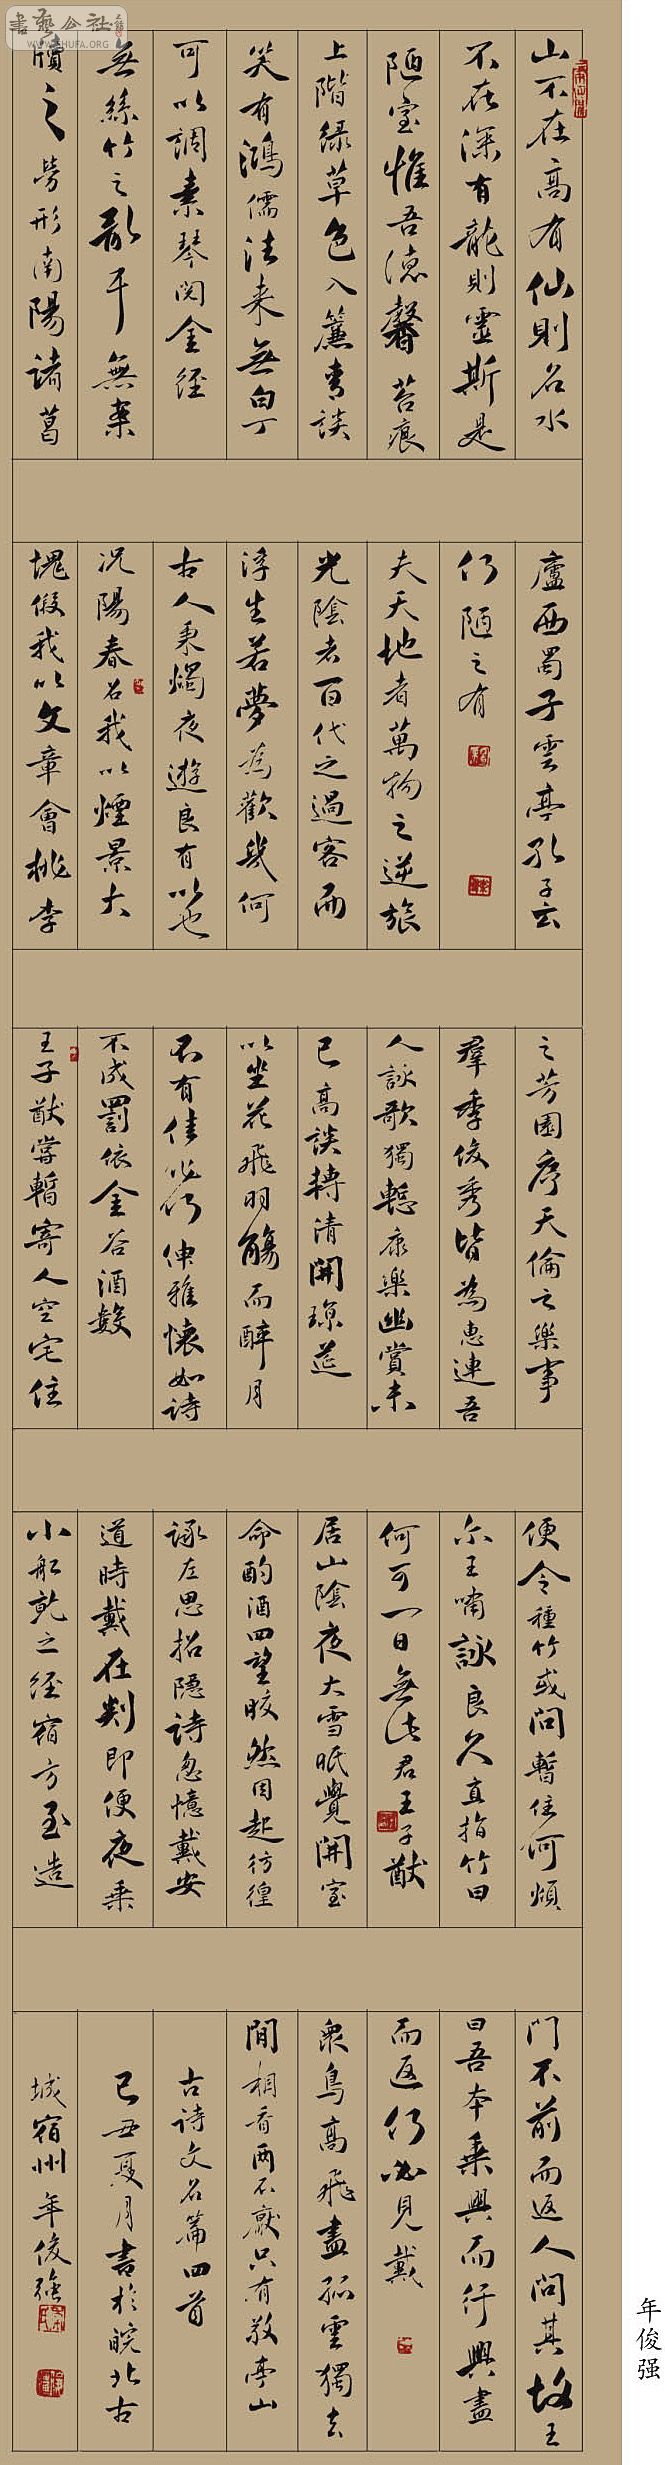 書藝公社
WWW.SHUFA.ORG
山不在高有仙則名水
不在深有龍則靈斯是
陋室惟吾德馨苔痕
上階綠草色入簾青談
笑有鴻儒往来無白丁
可以調素琴閱金經
無絲竹之亂耳無案
牘之勞形南陽諸葛
廬西蜀子雲亭孔子云
何陋之有
夫天地者萬物之逆旅
光陰者百代之過客而
浮生若夢為歡幾何
古人秉燭夜遊良有以也
況陽春召我以煙景大
塊假我以文章會桃李
之芳園序天倫之樂事
羣季俊秀皆為惠連吾
人詠歌獨慙康樂幽賞未
已高談轉清開瓊筵
以坐花飛羽觴而醉月
不有佳作何伸雅懷如詩
不成罰依金谷酒數
王子猷嘗暫寄人空宅住
便令種竹或問暫住何煩
尔王嘯詠良久直指竹曰
何可一日無此君王子猷
居山陰夜大雪眠覺開室
命酌酒四望皎然因起彷徨
詠左思招隱詩忽憶戴安
道時戴在剡即便夜乘
小船就之經宿方至造
門不前而返人問其故王
曰吾本乘興而行興盡
而返何必見戴
衆鳥高飛盡孤雲獨去
閒相看兩不厭只有敬亭山
古詩文名篇四首
己丑夏月書於皖北古
城宿州年俊强
年俊强